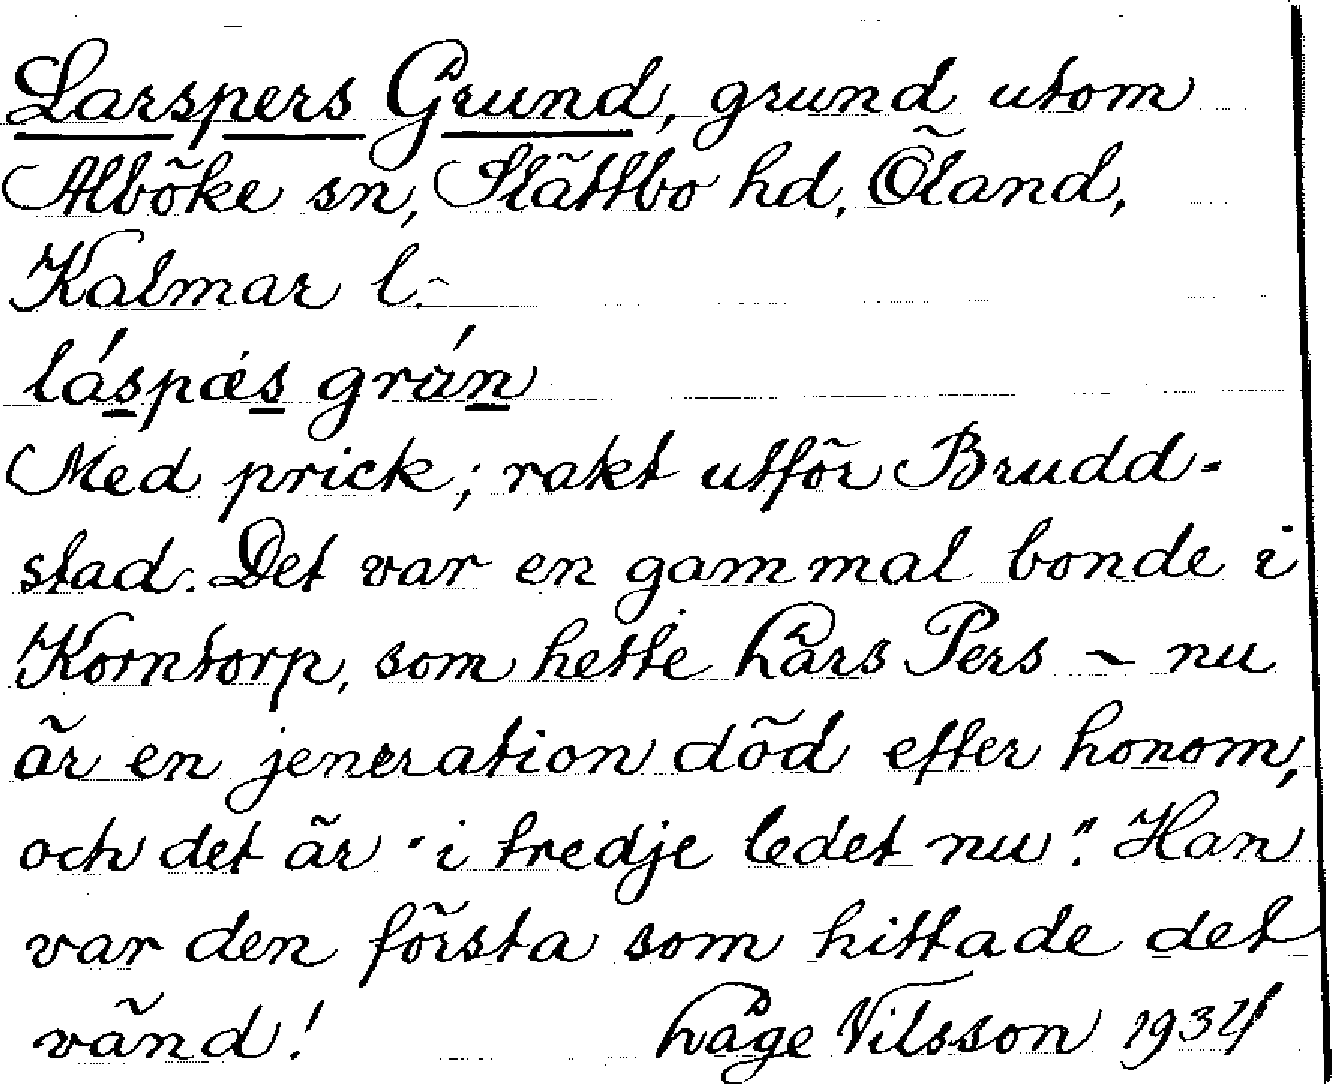 Larspers Grund, grund utom
Alböke sn, Slättbo hd, Öland,
Kalmar l.
láspæs grún
Med prick; rakt utför Brudd-
stad. Det var en gammal bonde i
Korntorp, som hette Lars Pers - nu
är en jeneration död efter honom,
och det är "i tredje ledet nu". Han
var den första som hittade det
vänd! Låge Nilsson 1934